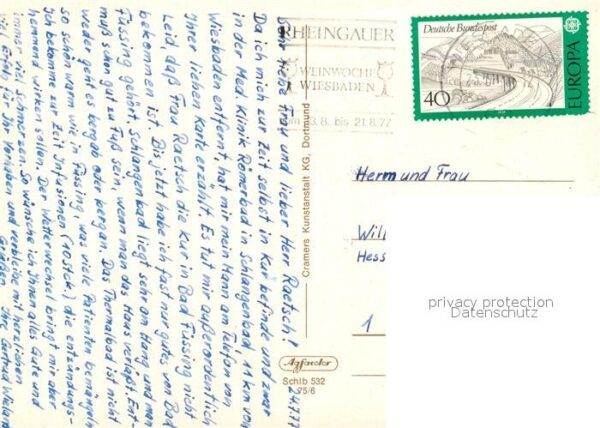 24.7.77
Liebe Frau und lieber Herr Raetsch!
Da ich mich zur Zeit selbst in Kur befinde und zwar
in der Med. Klinik Römerbad in Schlangenbad, 11 km von
Wiesbaden entfernt, hat mir mein Mann am Telefon von
Ihrer lieben Karte erzählt. Es tut mir außerordentlich
Leid, daß Frau Raetsch die Kur in Bad Füssing nicht
bekommen ist. Bis jetzt habe ich fast nur gute, von Bad
Füssing gehört. Schlangenbad liegt sehr am Hang und man
muß schon gut zu Fuß sein, wenn man das Haus verläßt. Ent-
weder geht es bergab oder bergan. Das Thermalbad ist nicht
so schön warm wie in Füssing, was viele Patienten bemängeln
Ich bekomme zur Zeit Infusionen (10 Stck.) die entzündungs-
hemmend wirken sollen. Der Wetterwechsel bringt mir aber
immer viel Schmerzen. So wünsche ich Ihnen alles Gute und
viel Erfolg für Ihr Vorhaben und verbleibe mit herzlichen
Grüßen Ihre Gertrud
Cramers Kunstanstalt KG, Dortmund
Agfacolor
Schlb 532
75/6
RHEINGAUER
WEINWOCHE
WIESBADEN
vom 13.8. bis 21.8.77
Deutsche Bundespost
40
EUROPA
Herrn und Frau
Will
Hess
1
privacy protection
Datenschutz